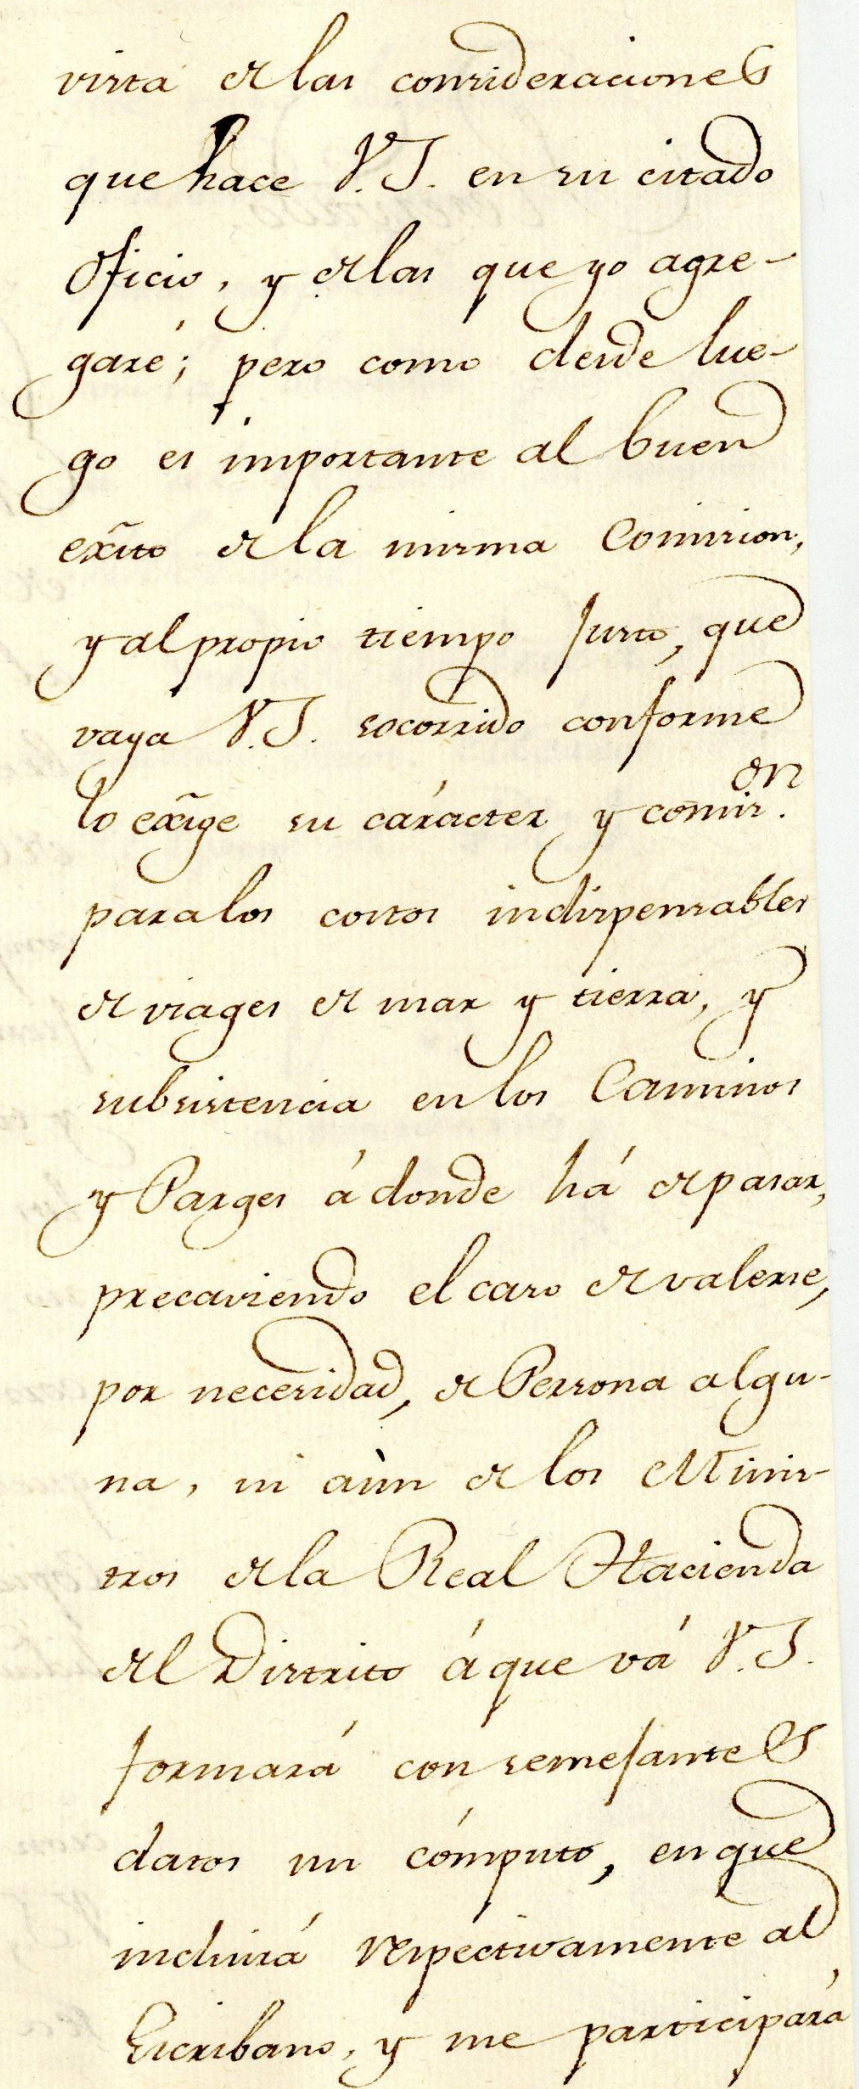 vista de las consideraciones
que hace V.S. en su citado
Oficio, y de las que yo agre-
garé; pero como desde lue-
go es importante al buen
exîto de la misma Comision,
y al propio tiempo justo, que
vaya V.S. socorrido conforme
lo exîge su carácter y comis.on
para los costos indispensables
de viages de mar y tierra, y
subsistencia en los Caminos
y Parges á donde há de pasar,
precaviendo el caso de valerse,
por necesidad, de Persona algu-
na, ni aùn de los Minis-
tros de la Real Hacienda
del Distrito á que vá V.S.
formará con semejantes
datos un cómputo, en que
incluirá respectivamente al
Escribano, y me participará